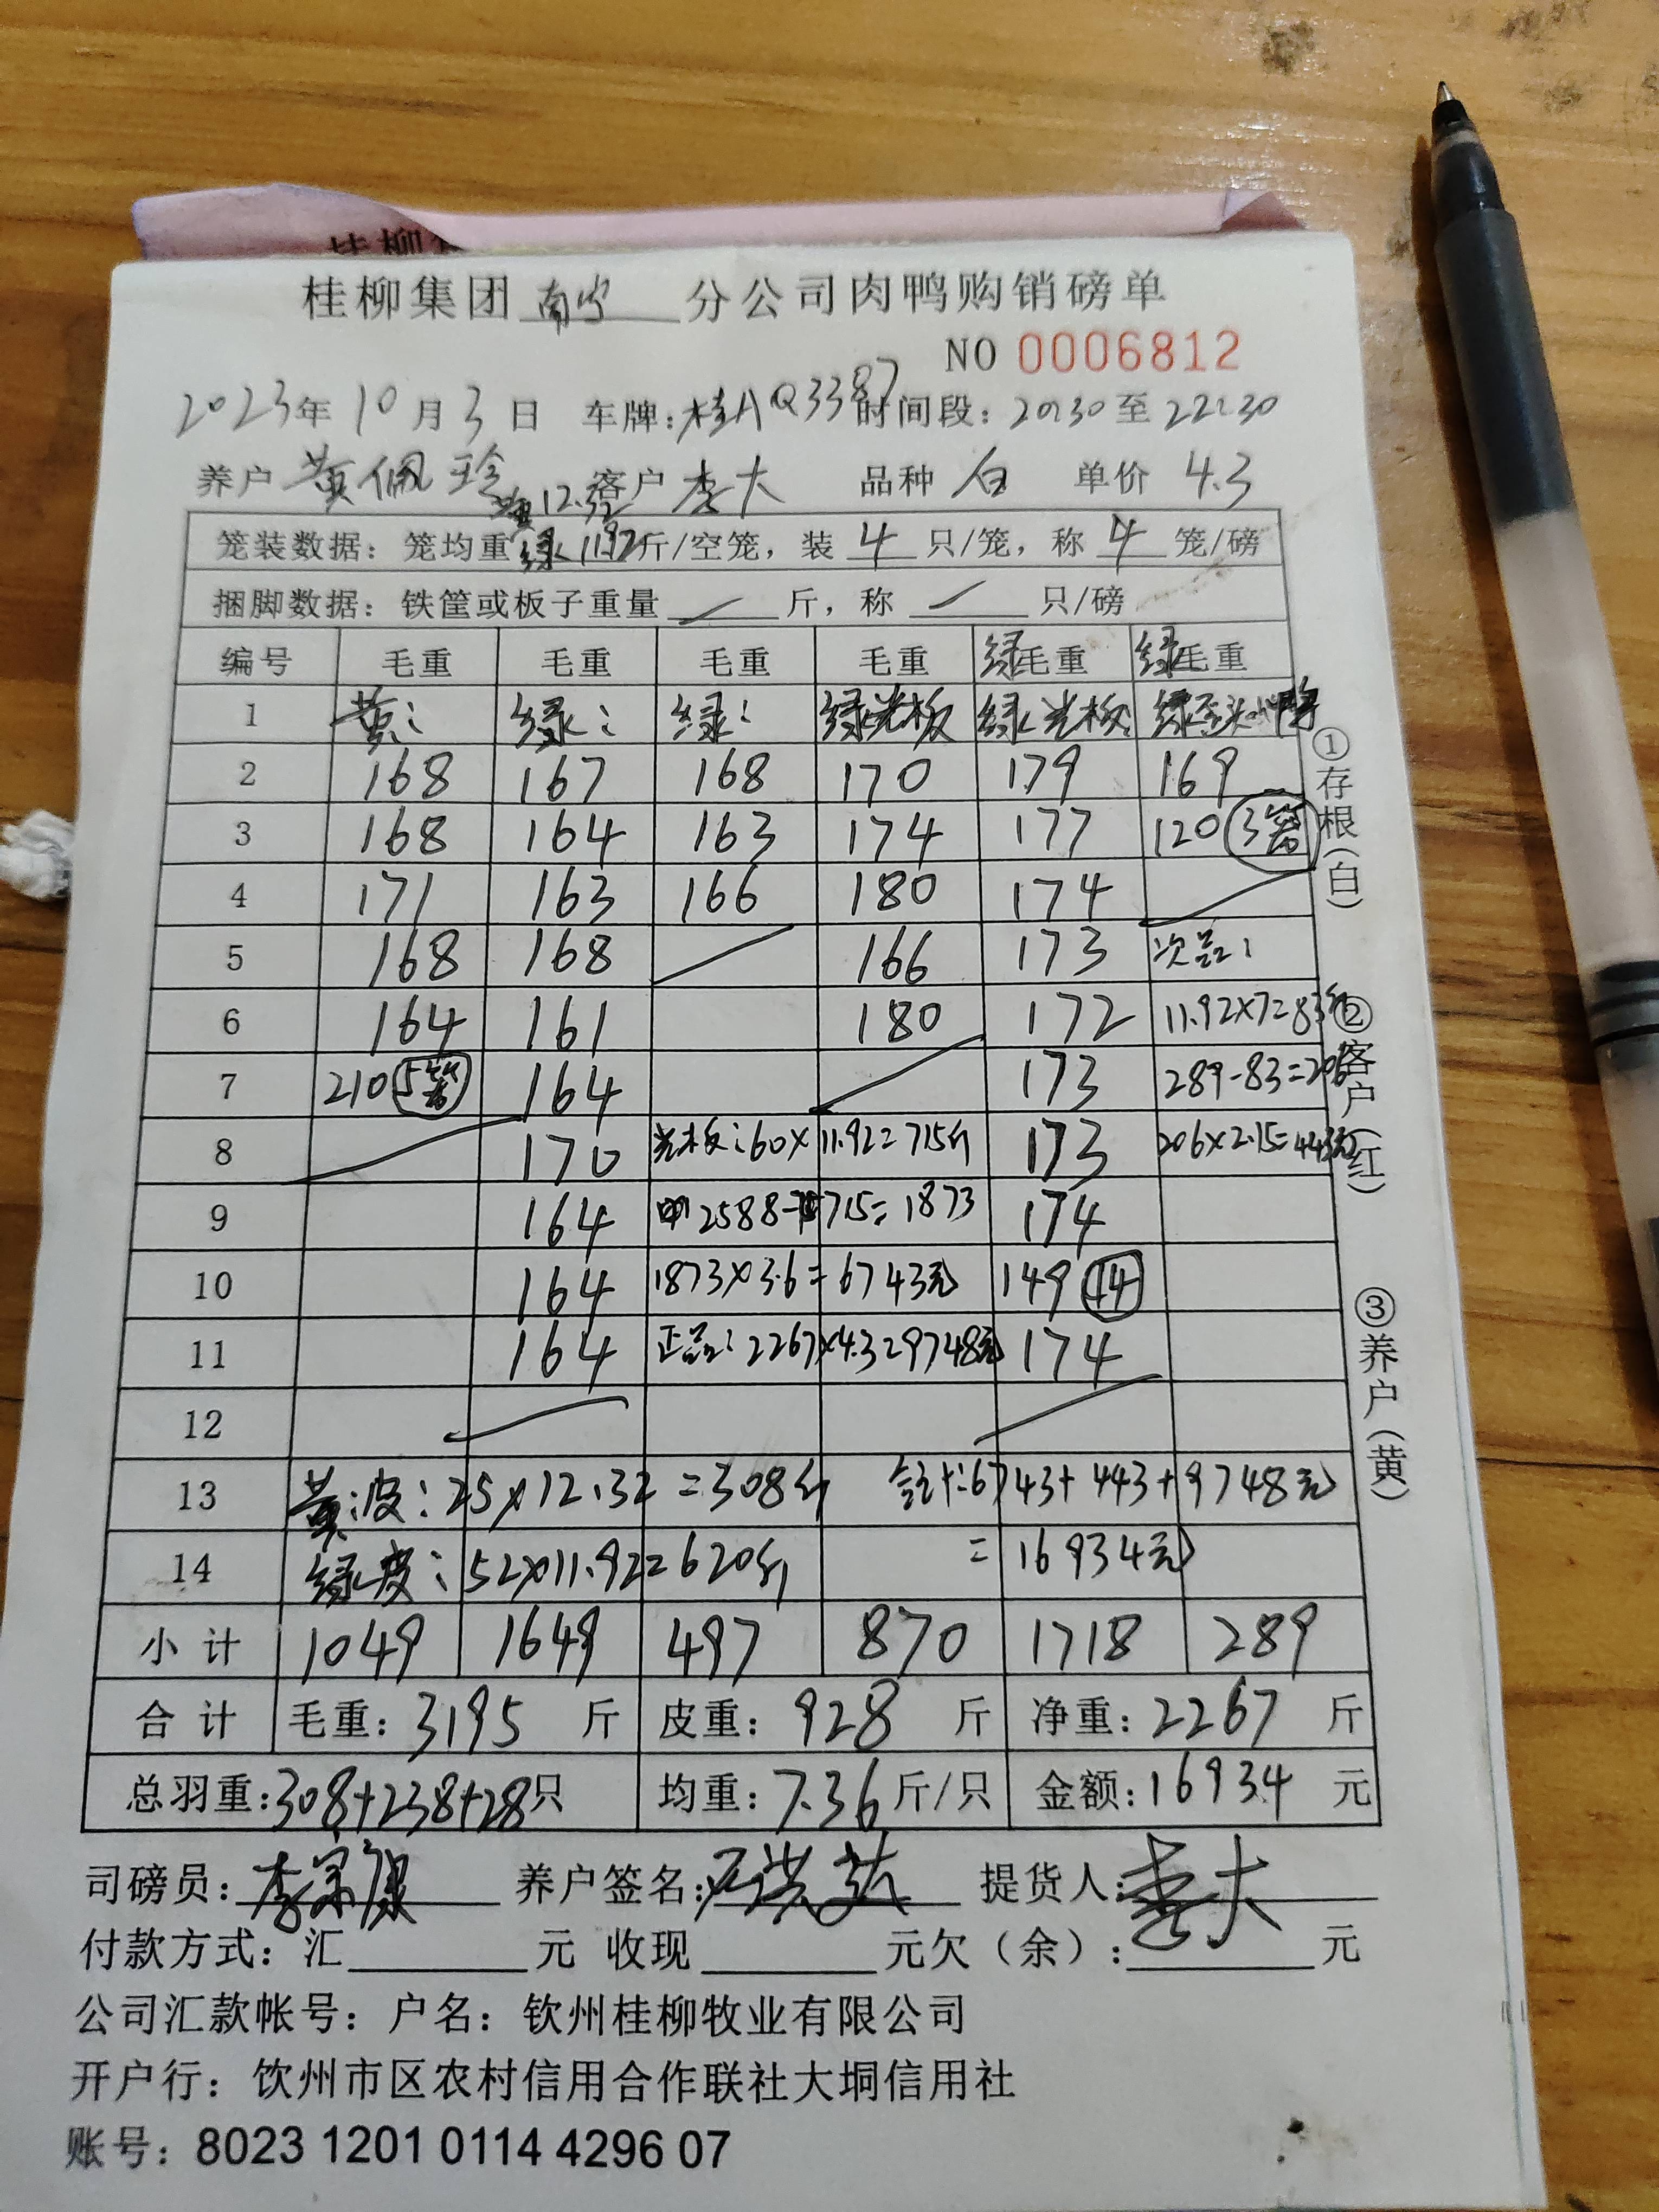 桂柳集团南宁分公司肉鸭购销磅单
NO 0006812
2023年10月3日 车牌:桂AQ3387 时间段:20:30至22:30
养户 黄佩珍 客户 李大 品种 白 单价 4.3
黄12.32
笼装数据:笼均重绿11.92斤/空笼,装 4 只/笼,称 4 笼/磅
捆脚数据:铁筐或板子重量 斤,称 只/磅
编号 毛重 毛重 毛重 毛重 绿毛重 绿毛重
1 黄: 绿: 绿: 绿光板 绿光板
2 168 167 168 170 179 169
3 168 164 163 174 177 120 3笼
4 171 163 166 180 174
5 168 168 166 173 次品:
6 164 161 180 172 11.92×7=83斤
7 210 5笼 164 173 289-83=206
8 170 光板:60×11.92=715斤 173 206×2.15=443元
9 164 2588-715=1873 174
10 164 1873×3.6=6743元 149 14
11 164 正品:2267×4.3=9748元 174
12
13 黄皮:25×12.32=308斤 合计:6743+443+9748元
14 绿皮:52×11.92=620斤 =16934元
小计 1049 1649 497 870 1718 289
合计 毛重:3195 斤 皮重:928 斤 净重:2267 斤
总羽重:308+238+28只 均重:7.36斤/只 金额:16934 元
①存根(白) ②客户(红) ③养户(黄)
司磅员:李宗康 养户签名: 提货人:李大
付款方式:汇 元 收现 元欠(余): 元
公司汇款帐号:户名:钦州桂柳牧业有限公司
开户行:钦州市区农村信用合作联社大垌信用社
账号:8023 1201 0114 4296 07